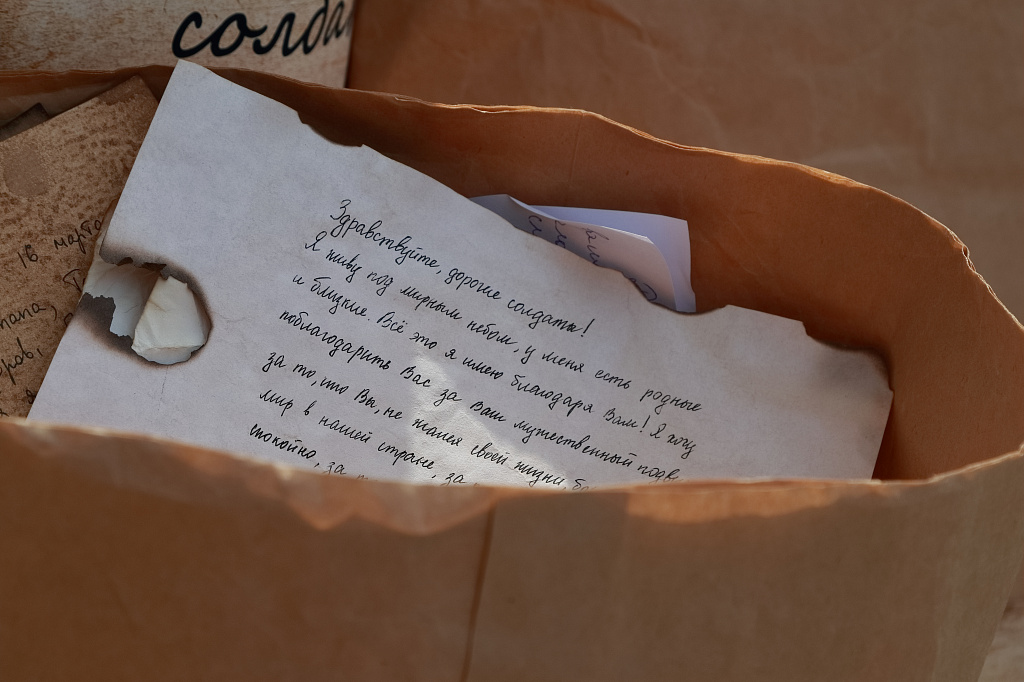 солда
16 марта
Здравствуйте, дорогие солдаты!
Я живу под мирным небом, у меня есть родные
и близкие. Всё это я имею благодаря Вам! Я хочу
поблагодарить Вас за Ваш мужественный подв
за то, что Вы, не жалея своей жизни, бо
мир в нашей стране, за
спокойно, за